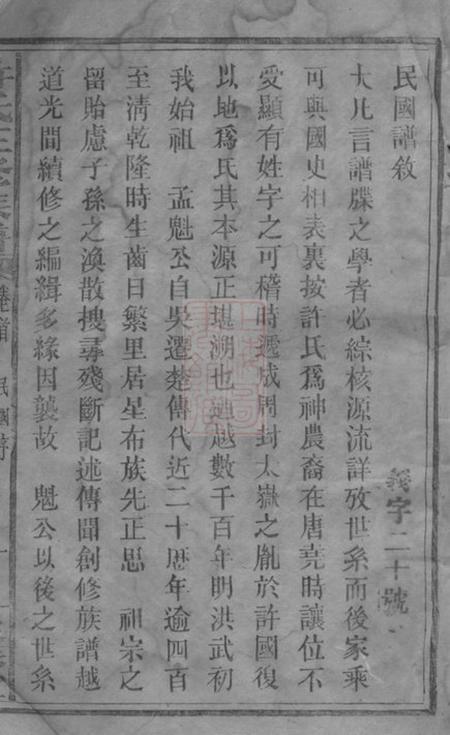 民國譜敘
大凡言譜牒之學者必綜核源流詳攷世系而後家乘
可與國史相表裏按許氏爲神農裔在唐堯時讓位不
受顯有姓字之可稽時遞成周封太嶽之胤於許國復
以地爲氏其本源正堪溯也迪越數千百年明洪武初
我始祖 孟魁公自吳遷楚傳代近二十歷年逾四百
至淸乾隆時生齒日繁里居星布族先正思 祖宗之
留貽慮子孫之渙散搜尋殘斷記述傳聞創修族譜越
道光間續修之編緝多緣因襲故 魁公以後之世系
義字二十號
卷首 民國序